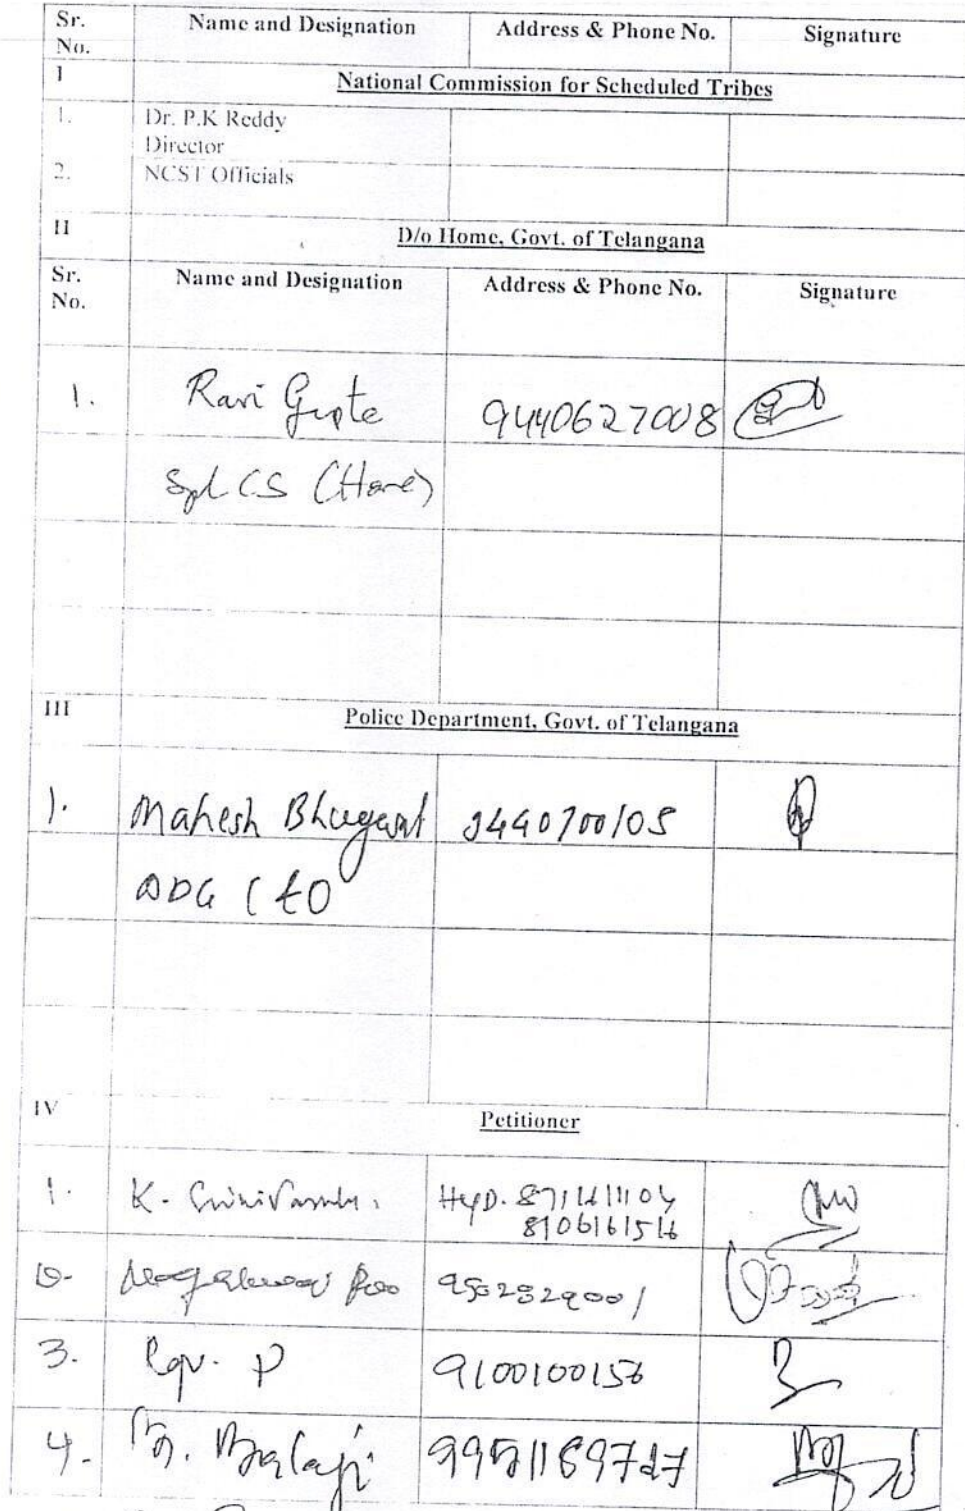 Sr. No. Name and Designation Address & Phone No. Signature
I National Commission for Scheduled Tribes
1. Dr. P.K Reddy
Director
2. NCST Officials
II D/o Home, Govt. of Telangana
Sr. No. Name and Designation Address & Phone No. Signature
1. Ravi Gupta 9440627008
Spl CS (Home)
III Police Department, Govt. of Telangana
1. Mahesh Bhagwat 9440700105
ADG L&O
IV Petitioner
1. K. Srinivasulu. HYD.
8106161516
Rao
3. P 9100100156
4. Balaji